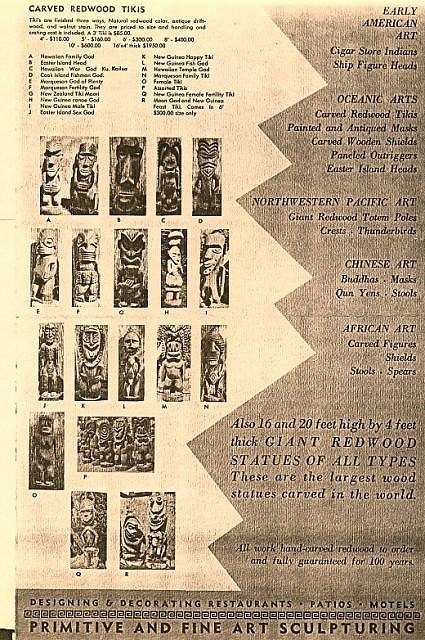 CARVED REDWOOD TIKIS
Tiki's are finished three ways, Natural redwood color, antique drift-
wood, and walnut stain. They are priced to size and handling and
crating cost is included. A 3' Tiki is $85.00.
4' - $110.00 5' - $160.00 6' - $300.00 8' - $400.00
10' - $600.00 16'x4' thick $1950.00
A Hawaiian Family God
B Easter Island Head
C Hawaiian War God Ku, Kailua
D Cook Island Fishman God
E Marquesan God of Plenty
F Marquesan Fertility God
G New Zealand Tiki Maori
H New Guinea canoe God
I New Guinea Male Tiki
J Easter Island Sex God
K New Guinea Happy Tiki
L New Guinea Fish God
M Hawaiian Temple God
N Marquesan Family Tiki
O Female Tiki
P Assorted Tikis
Q New Guinea Female Fertility Tiki
R Moon God and New Guinea
Feast Tiki. Comes in 6'
$300.00 size only
A B C D
E F G H I
J K L M N
O P
Q R
EARLY
AMERICAN
ART
Cigar Store Indians
Ship Figure Heads
OCEANIC ARTS
Carved Redwood Tikis
Painted and Antiqued Masks
Carved Wooden Shields
Paneled Outriggers
Easter Island Heads
NORTHWESTERN PACIFIC ART
Giant Redwood Totem Poles
Crests · Thunderbirds
CHINESE ART
Buddhas · Masks
Qun Yens · Stools
AFRICAN ART
Carved Figures
Shields
Stools · Spears
Also 16 and 20 feet high by 4 feet
thick GIANT REDWOOD
STATUES OF ALL TYPES
These are the largest wood
statues carved in the world.
All work hand-carved redwood to order
and fully guaranteed for 100 years.
DESIGNING & DECORATING RESTAURANTS · PATIOS · MOTELS
PRIMITIVE AND FINE ART SCULPTURING